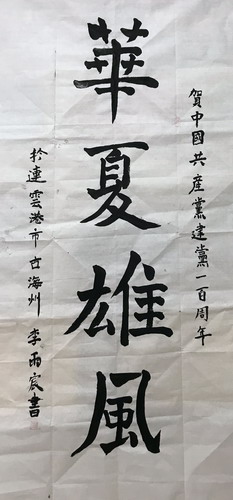 賀中國共産黨建黨一百周年
華夏雄風
於連雲港市古海州 李雨宸書